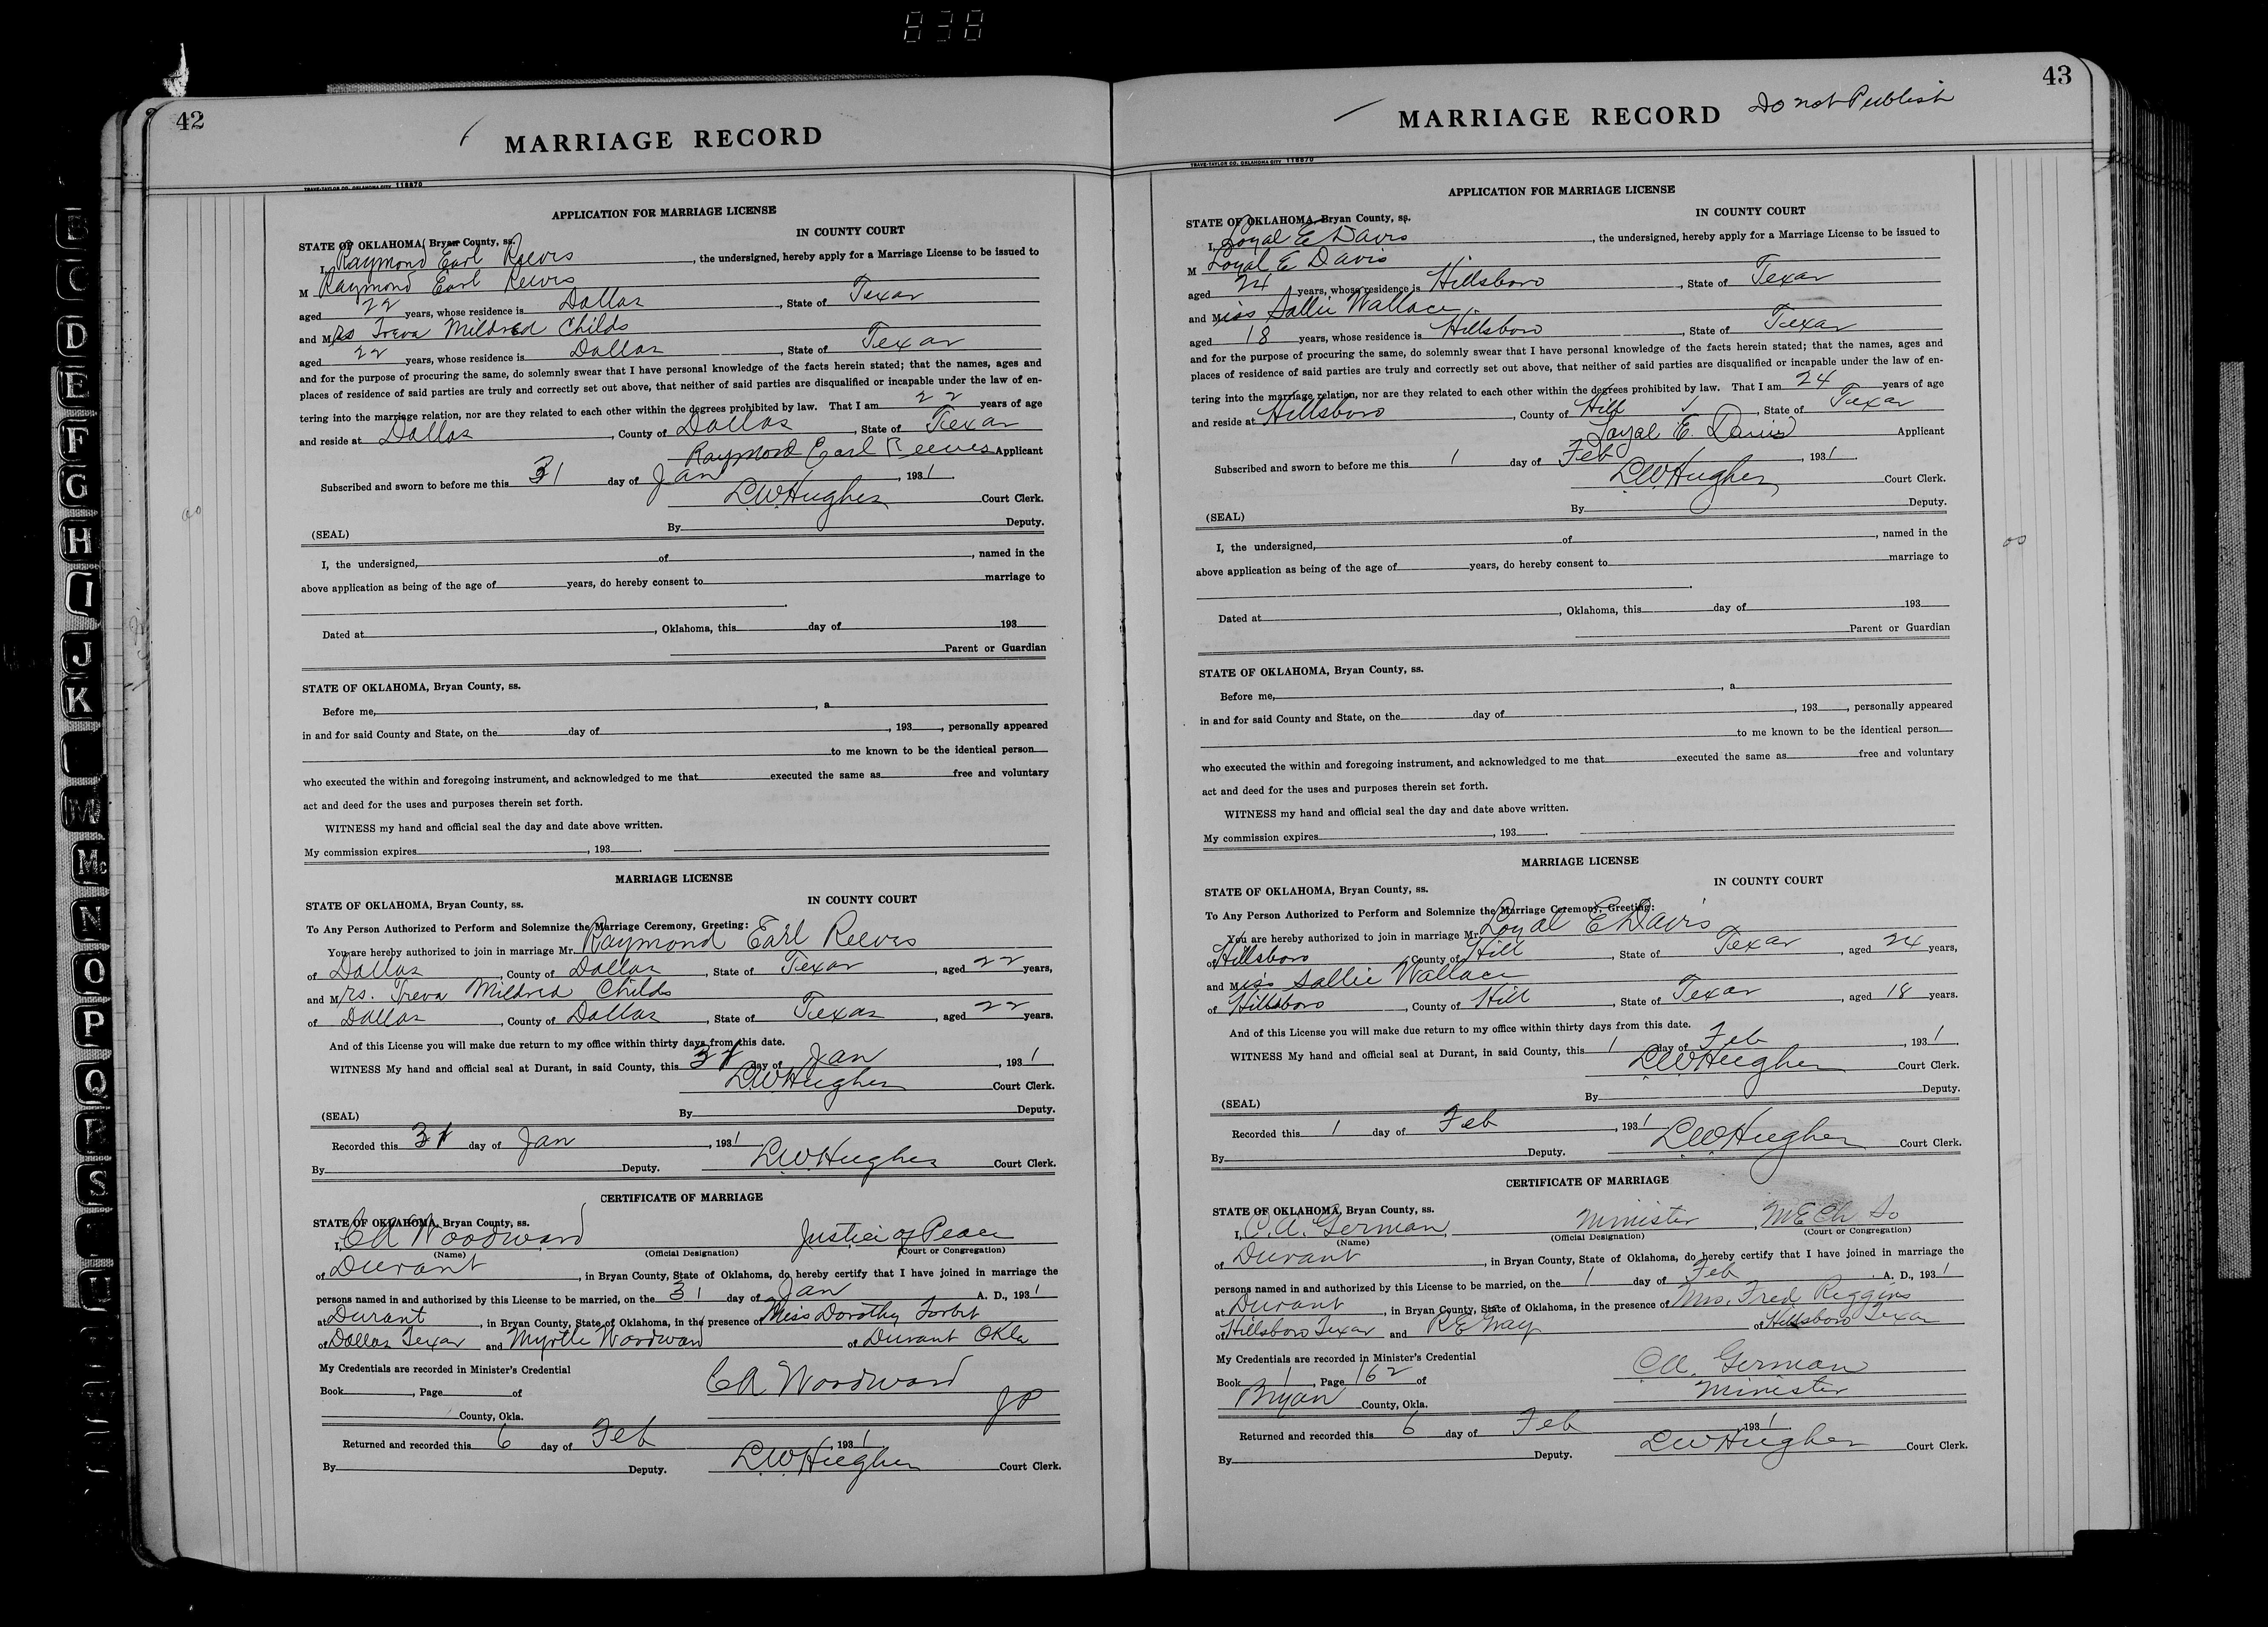 838
42
MARRIAGE RECORD
TRAVE-TAYLOR CO. OKLAHOMA CITY 118870
APPLICATION FOR MARRIAGE LICENSE
IN COUNTY COURT
STATE OF OKLAHOMA, Bryan County, ss.
I, Raymond Earl Reeves, the undersigned, hereby apply for a Marriage License to be issued to
M Raymond Earl Reeves
aged 22 years, whose residence is Dallas, State of Texas
and Mrs Treva Mildred Childs
aged 22 years, whose residence is Dallas, State of Texas
and for the purpose of procuring the same, do solemnly swear that I have personal knowledge of the facts herein stated; that the names, ages and
places of residence of said parties are truly and correctly set out above, that neither of said parties are disqualified or incapable under the law of en-
tering into the marriage relation, nor are they related to each other within the degrees prohibited by law. That I am 22 years of age
and reside at Dallas, County of Dallas, State of Texas
Raymond Earl Reeves Applicant
Subscribed and sworn to before me this 31 day of Jan, 1931.
L.W. Hughes Court Clerk.
(SEAL) By Deputy.
I, the undersigned, of , named in the
above application as being of the age of years, do hereby consent to marriage to
.
Dated at , Oklahoma, this day of 193
Parent or Guardian
STATE OF OKLAHOMA, Bryan County, ss.
Before me, , a
in and for said County and State, on the day of , 193 , personally appeared
to me known to be the identical person
who executed the within and foregoing instrument, and acknowledged to me that executed the same as free and voluntary
act and deed for the uses and purposes therein set forth.
WITNESS my hand and official seal the day and date above written.
My commission expires , 193 .
MARRIAGE LICENSE
IN COUNTY COURT
STATE OF OKLAHOMA, Bryan County, ss.
To Any Person Authorized to Perform and Solemnize the Marriage Ceremony, Greeting:
You are hereby authorized to join in marriage Mr. Raymond Earl Reeves
of Dallas, County of Dallas, State of Texas, aged 22 years,
and Mrs. Treva Mildred Childs
of Dallas, County of Dallas, State of Texas, aged 22 years.
And of this License you will make due return to my office within thirty days from this date.
WITNESS My hand and official seal at Durant, in said County, this 31 day of Jan, 1931.
L.W. Hughes Court Clerk.
(SEAL) By Deputy.
Recorded this 31 day of Jan, 1931
By Deputy. L.W. Hughes Court Clerk.
CERTIFICATE OF MARRIAGE
STATE OF OKLAHOMA, Bryan County, ss.
I, C A Woodward Justice of Peace
(Name) (Official Designation) (Court or Congregation)
of Durant, in Bryan County, State of Oklahoma, do hereby certify that I have joined in marriage the
persons named in and authorized by this License to be married, on the 31 day of Jan A. D., 1931
at Durant, in Bryan County, State of Oklahoma, in the presence of Miss Dorothy
of Dallas Texas and Myrtle Woodward of Durant Okla
My Credentials are recorded in Minister's Credential
Book , Page of C A Woodward
County, Okla. J P
Returned and recorded this 6 day of Feb, 1931
By Deputy. L.W. Hughes Court Clerk.
43
MARRIAGE RECORD Do not Publish
TRAVE-TAYLOR CO. OKLAHOMA CITY 118870
APPLICATION FOR MARRIAGE LICENSE
IN COUNTY COURT
STATE OF OKLAHOMA, Bryan County, ss.
I, Loyal E Davis, the undersigned, hereby apply for a Marriage License to be issued to
M Loyal E Davis
aged 24 years, whose residence is Hillsboro, State of Texas
and Miss Sallie Wallace
aged 18 years, whose residence is Hillsboro, State of Texas
and for the purpose of procuring the same, do solemnly swear that I have personal knowledge of the facts herein stated; that the names, ages and
places of residence of said parties are truly and correctly set out above, that neither of said parties are disqualified or incapable under the law of en-
tering into the marriage relation, nor are they related to each other within the degrees prohibited by law. That I am 24 years of age
and reside at Hillsboro, County of Hill, State of Texas
Loyal E. Davis Applicant
Subscribed and sworn to before me this 1 day of Feb, 1931.
L.W. Hughes Court Clerk.
(SEAL) By Deputy.
I, the undersigned, of , named in the
above application as being of the age of years, do hereby consent to marriage to
.
Dated at , Oklahoma, this day of 193
Parent or Guardian
STATE OF OKLAHOMA, Bryan County, ss.
Before me, , a
in and for said County and State, on the day of , 193 , personally appeared
to me known to be the identical person
who executed the within and foregoing instrument, and acknowledged to me that executed the same as free and voluntary
act and deed for the uses and purposes therein set forth.
WITNESS my hand and official seal the day and date above written.
My commission expires , 193 .
MARRIAGE LICENSE
IN COUNTY COURT
STATE OF OKLAHOMA, Bryan County, ss.
To Any Person Authorized to Perform and Solemnize the Marriage Ceremony, Greeting:
You are hereby authorized to join in marriage Mr. Loyal E Davis
of Hillsboro, County of Hill, State of Texas, aged 24 years,
and Miss Sallie Wallace
of Hillsboro, County of Hill, State of Texas, aged 18 years.
And of this License you will make due return to my office within thirty days from this date.
WITNESS My hand and official seal at Durant, in said County, this 1 day of Feb, 1931.
L.W. Hughes Court Clerk.
(SEAL) By Deputy.
Recorded this 1 day of Feb, 1931
By Deputy. L.W. Hughes Court Clerk.
CERTIFICATE OF MARRIAGE
STATE OF OKLAHOMA, Bryan County, ss.
I, C.A. German, Minister, M E Ch So
(Name) (Official Designation) (Court or Congregation)
of Durant, in Bryan County, State of Oklahoma, do hereby certify that I have joined in marriage the
persons named in and authorized by this License to be married, on the 1 day of Feb A. D., 1931
at Durant, in Bryan County, State of Oklahoma, in the presence of Mrs. Fred Riggins
of Hillsboro Texas and R E Gray of Hillsboro Texas
My Credentials are recorded in Minister's Credential
Book 1, Page 162 of C.A. German
Bryan County, Okla. Minister
Returned and recorded this 6 day of Feb, 1931
By Deputy. L W Hughes Court Clerk.
C
D
E
F
G
H
I
J
K
M
Mc
N
O
P
Q
R
S
U